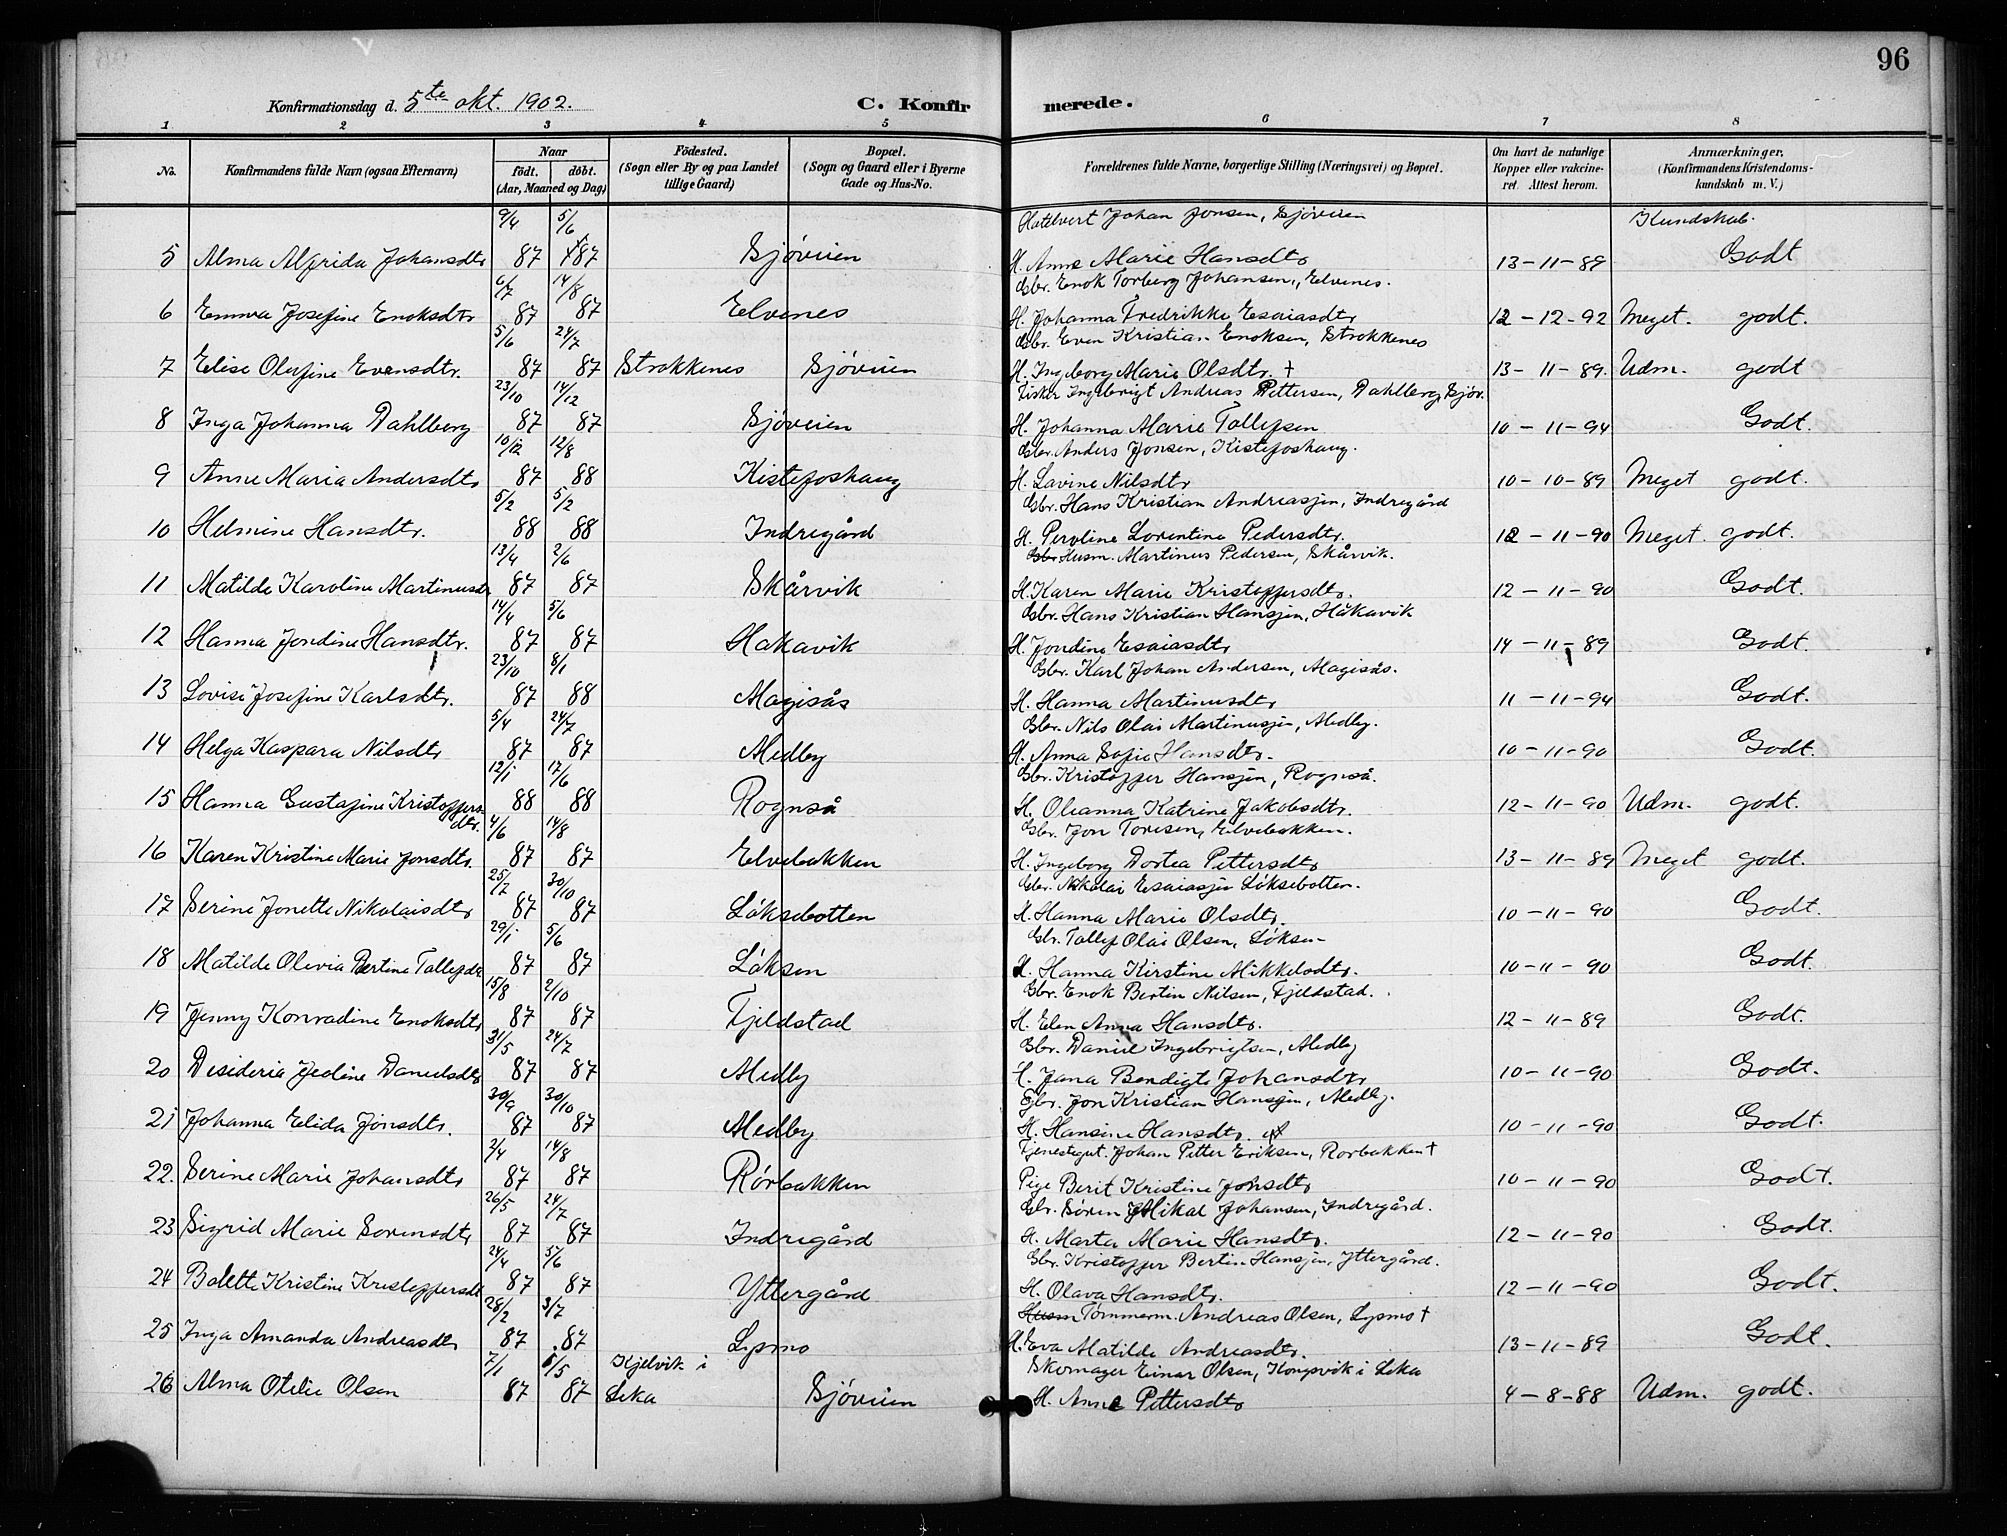 96
Konfirmationsdag d. 5te okt. 1902. C. Konfirmerede.
1 2 3 4 5 6 7 8
No. Konfirmandens fulde Navn (ogsaa Efternavn) Naar født. døbt. (Aar, Maaned og Dag) Fødested. (Sogn eller By og paa Landet tillige Gaard) Bopæl. (Sogn og Gaard eller i Byerne Gade og Hus-No. Forældrenes fulde Navne, borgerlige Stilling (Næringsvei) og Bopæl. Om havt de naturlige Kopper eller vakcineret. Attest herom. Anmærkninger, (Konfirmandens Kristendomskundskab m. V.)
9/4 5/6 Johan Jonsen, Sjøveien Kundskab.
5 Alma Alfrida Johansdtr 87 87 Sjøveien H. Anne Marie Hansdtr 13-11-89 Godt
6/7 14/8 Gbr. Enok Torberg Johansen, Elvenes.
6 Emma Josefine Enoksdtr 87 87 Elvenes H. Johanna Fredrikke Esaiasdtr 12-12-92 Meget godt.
5/6 24/7 Gbr. Even Kristian Enoksen, Strokkenes
7 Elise Olufine Evensdtr. 87 87 Strokkenes Sjøveien H. Ingeborg Marie Olsdtr. † 13-11-89. Udm. godt
23/10 14/12 Fisker Ingebrigt Andreas Pettersen, Dahlberg, Sjøv.
8 Inga Johanna Dahlberg 87 87 Sjøveien H. Johanna Marie Tollefsen 10-11-94 Godt.
10/12 12/8 Gbr. Anders Jonsen, Kistefoshaug.
9 Anne Maria Andersdtr 87 88 Kistefoshaug H. Lavine Nilsdtr 10-10-89 Meget godt.
5/2 5/2 Gbr. Hans Kristian Andreassen, Indregård
10 Helmine Hansdtr. 88 88 Indregård H. Peroline Lorentine Pedersdtr. 12-11-90 Meget godt.
13/4 2/6 Gbr. Husm. Martinus Pedersen, Skårvik.
11 Matilde Karoline Martinusdtr 87 87 Skårvik H. Karen Marie Kristoffersdtr. 12-11-90 Godt.
14/4 5/6 Gbr. Hans Kristian Hansen, Håkavik
12 Hanna Jondine Hansdtr. 87 87 Hakavik H. Jondine Esaiasdtr 14-11-89 Godt.
23/10 8/1 Gbr. Karl Johan Andersen, Magisås.
13 Lovise Josefine Karlsdtr. 87 88 Magisås H. Hanna Martinusdtr 11-11-94 Godt.
5/4 24/7 Gbr. Nils Olai Martinusen, Medby.
14 Helga Kaspara Nilsdtr 87 87 Medby H. Anna Sofie Hansdtr. 10-11-90 Godt.
12/1 17/6 Gbr. Kristoffer Hansen, Rognså.
15 Hanna Gustafine Kristoffersdtr. 88 88 Rognså H. Oleanna Katrine Jakobsdtr. 12-11-90 Udm. godt.
4/6 14/8 Gbr. Jon Toresen, Elvebakken.
16 Karen Kristine Marie Jonsdtr. 87 87 Elvebakken H. Ingeborg Dortea Pettersdtr 13-11-89 Meget godt.
25/7 30/10 Gbr. Nikolai Esaiassen Løksebotten.
17 Serine Jonette Nikolaisdtr 87 87 Løksebotten H. Hanna Marie Olsdtr. 10-11-90 Godt.
29/1 5/6 Gbr. Tollef Olai Olsen, Løksen
18 Matilde Olevia Bertine Tollefsdtr 87 87 Løksen H. Hanna Kirstine Mikkelsdtr. 10-11-90 Godt.
15/8 2/10 Gbr. Enok Bertin Nilsen, Fjeldstad.
19 Jenny Konradine Enoksdtr 87 87 Fjeldstad H. Elen Anna Hansdtr. 12-11-89 Godt.
31/5 24/7 Gbr. Daniel Ingebrigtsen, Medby
20 Desideria Jedine Danielsdtr 87 87 Medby H. Jana Bendigte Johansdtr 10-11-90 Godt.
30/9 30/10 Gbr. Jon Kristian Hansen, Medby.
21 Johanna Elida Jonsdtr. 87 87 Medby H. Hansine Hansdtr. 10-11-90 Godt.
2/4 14/8 Tjenestegut. Johan Petter Eriksen, Rorbakken †
22. Serine Marie Johansdtr 87 87 Rörbakken Pige Berit Kristine Jonsdtr 10-11-90 Godt.
26/5 24/7 Gbr. Søren Mikal Johansen, Indregård.
23 Sigrid Marie Sorensdtr 87 87 Indregård H. Marta Marie Hansdtr. 12-11-90 Godt.
24/4 5/6 Gbr. Kristoffer Bertin Hansen, Yttergård.
24 Bolette Kristine Kristoffersdtr 87 87 Yttergård H. Olava Hansdtr. 12-11-90 Godt.
28/2 3/7 Husm Tømmerm. Andreas Olsen, Lysmo †
25 Inga Amanda Andreasdtr 87 87 Lysmo H. Eva Matilde Andreasdtr. 13-11-89 Godt.
7/1 5/5 Kjelvik i Skomager Einar Olsen, Kongsvik i Leka
26 Alma Otilie Olsen 87 87 Leka Sjøveien H. Anne Pettersdtr 4-8-88 Udm. godt.